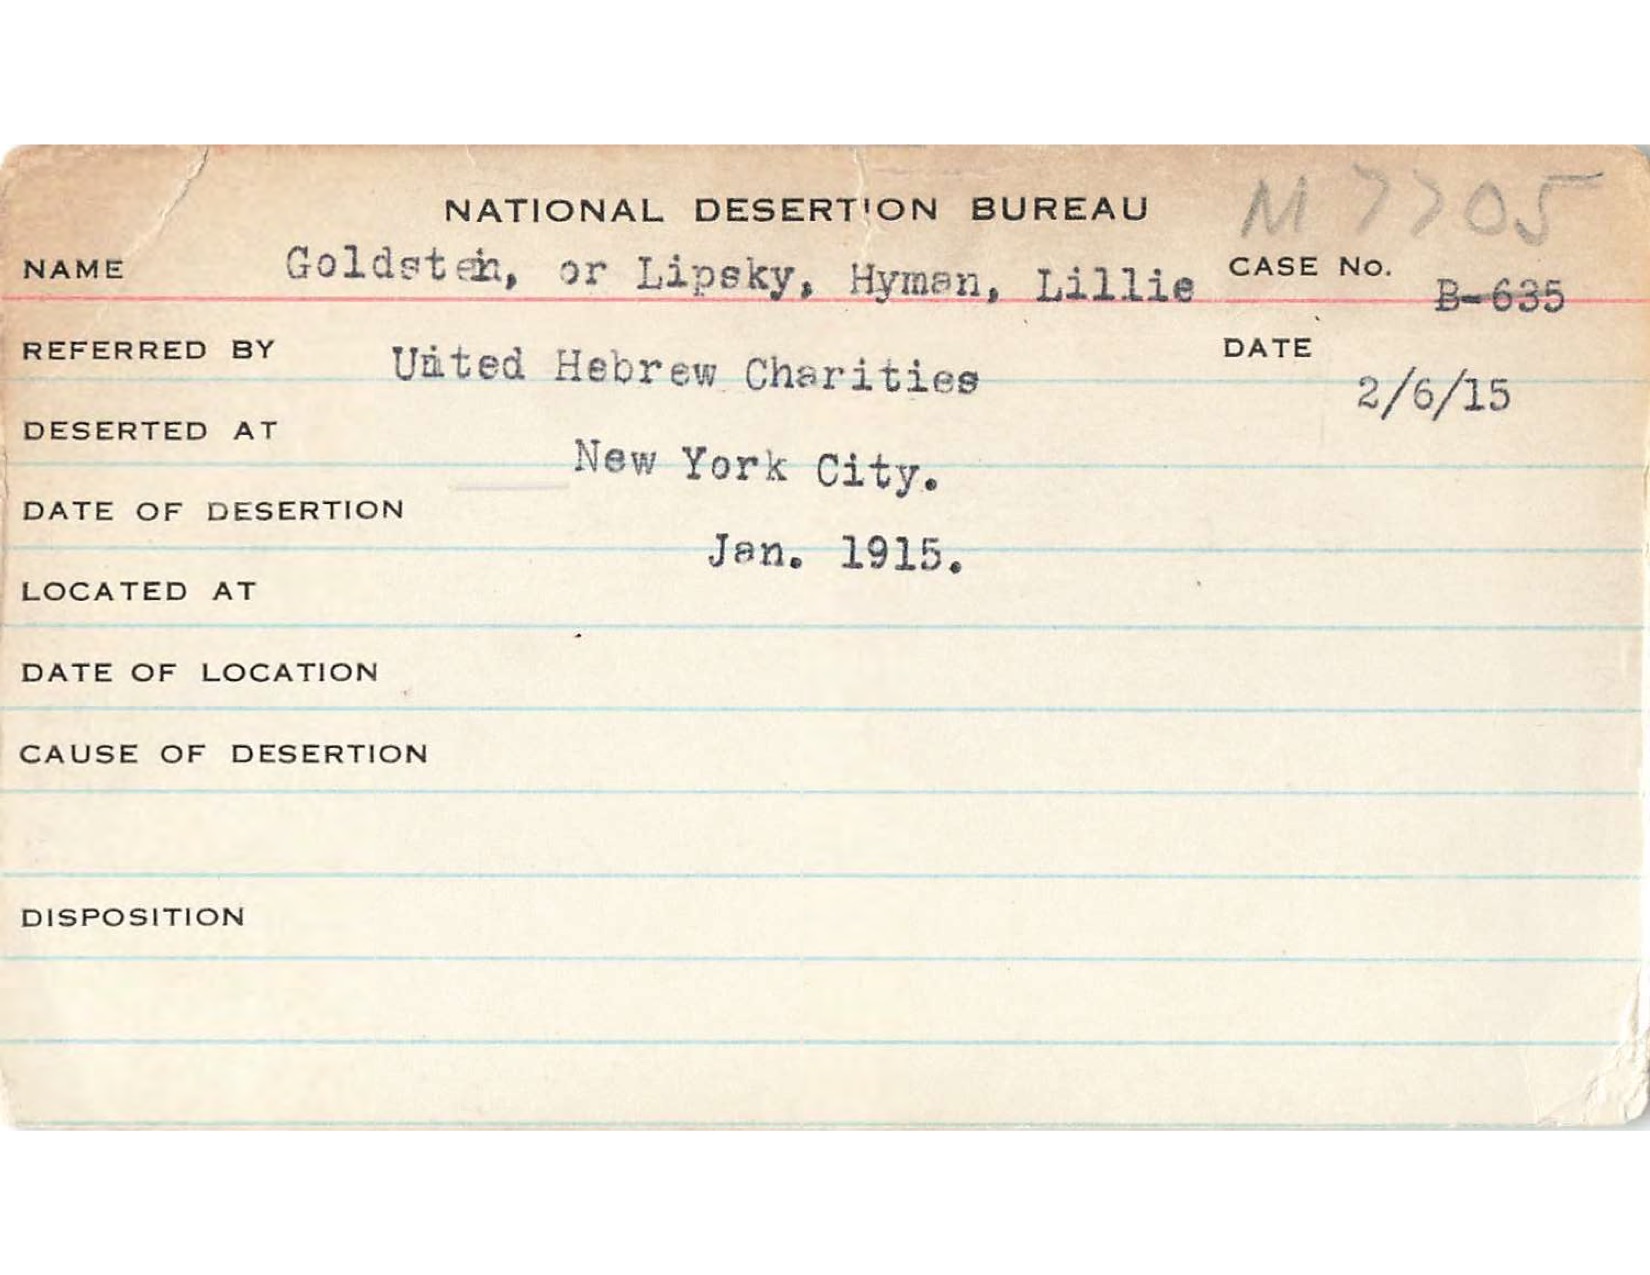 M 7705
NATIONAL DESERTION BUREAU
NAME Goldstein, or Lipsky, Hyman, Lillie CASE No. B-635
REFERRED BY United Hebrew Charities DATE 2/6/15
DESERTED AT New York City.
DATE OF DESERTION Jan. 1915.
LOCATED AT
DATE OF LOCATION
CAUSE OF DESERTION
DISPOSITION